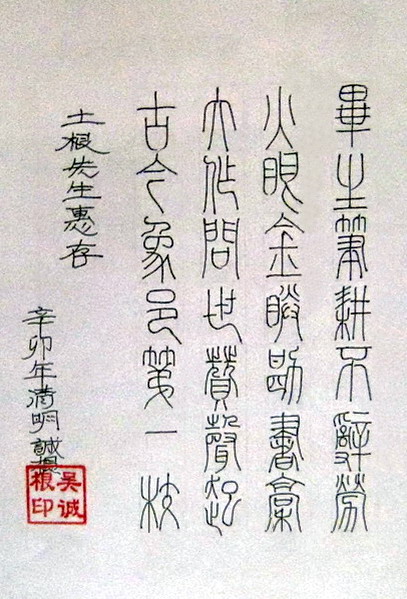 畢生筆耕不辭勞
火眼金睛勘書稾
大作問世贊聲起
古今象邑第一枝
土根先生惠存
辛卯年清明誠根
吴诚
根印